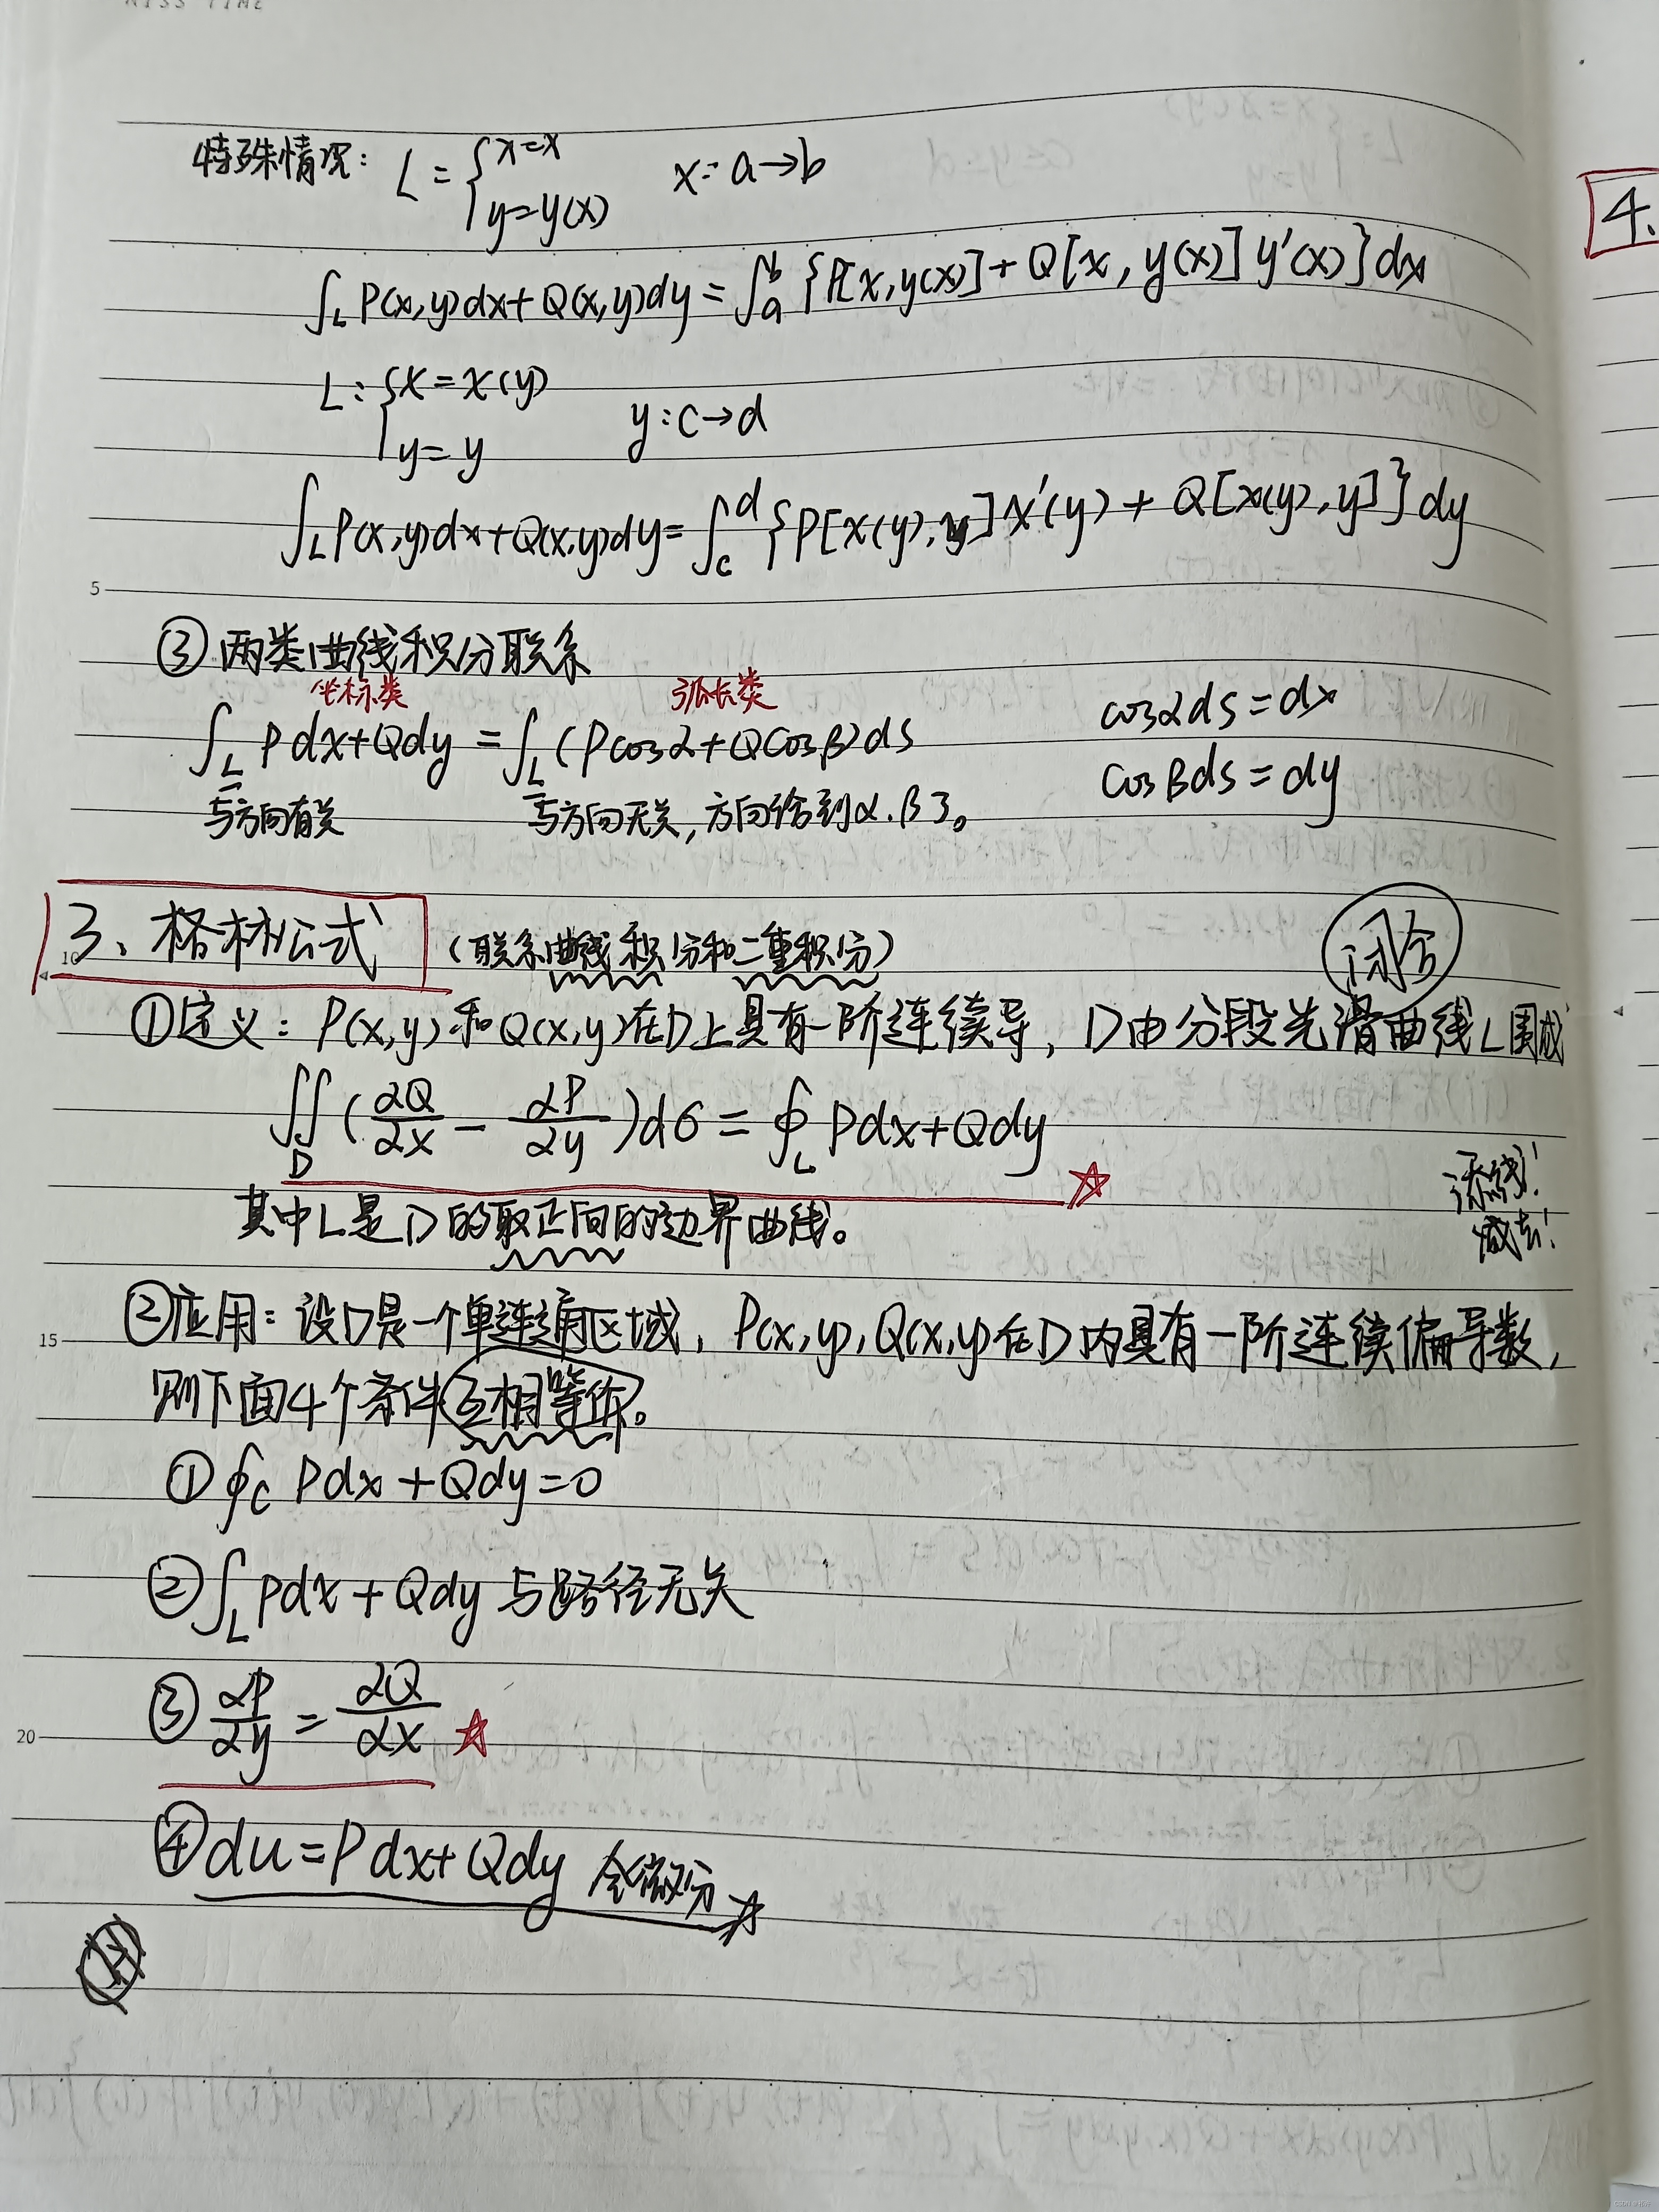 KISS TIME
特殊情况: L = { x=x   x: a→b
y=y(x)
∫_L P(x,y)dx+Q(x,y)dy = ∫_a^b {P[x,y(x)] + Q[x,y(x)] y'(x)}dx
L: { x=x(y)   y: c→d
y=y
∫_L P(x,y)dx+Q(x,y)dy = ∫_c^d {P[x(y),y] x'(y) + Q[x(y),y]}dy
5
③ 两类曲线积分联系
坐标类   弧长类
∫_L Pdx+Qdy = ∫_L (Pcosα+Qcosβ)ds   cosαds=dx
cosβds=dy
与方向有关   与方向无关, 方向给到α.β了。
10
3、格林公式 (联系曲线积分和二重积分)   闭合
①定义: P(x,y)和Q(x,y)在D上具有一阶连续导, D由分段光滑曲线L围成
∬_D (∂Q/∂x - ∂P/∂y)dσ = ∮_L Pdx+Qdy ☆
添线!
减去!
其中L是D的取正向的边界曲线。
②应用: 设D是一个单连通区域, P(x,y), Q(x,y)在D内具有一阶连续偏导数,
15
则下面4个条件互相等价。
① ∮_C Pdx+Qdy=0
② ∫_L Pdx+Qdy 与路径无关
③ ∂P/∂y = ∂Q/∂x ☆
20
④ du=Pdx+Qdy 全微分 ☆
4.